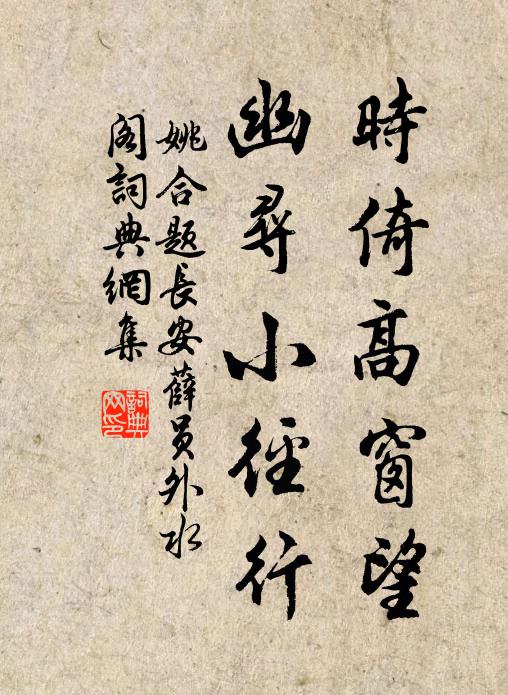 時倚高窗望
幽尋小徑行
姚合題長安薛員外水
閣詞典網集
詞典網印